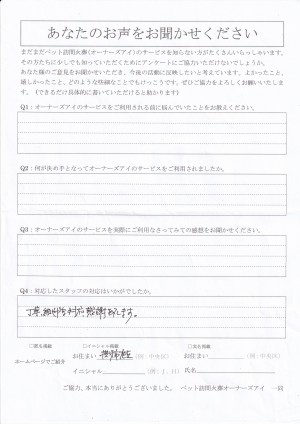 あなたのお声をお聞かせください
まだまだペット訪問火葬(オーナーズアイ)のサービスを知らない方がたくさんいらっしゃいます。
その方たちに少しでも知っていただくためにアンケートにご協力いただけないでしょうか。
あなた様のご意見をお聞かせいただき、今後の活動に反映したいと考えています。よかったこと、
嬉しかったこと、どのような些細なことでもけっこうです。ぜひご協力をよろしくお願いいたします。
(できるだけ具体的に書いていただけると助かります)
Q1:オーナーズアイのサービスをご利用される前に悩んでいたことをお教えください。
Q2:何が決め手となってオーナーズアイのサービスをご利用されましたか。
Q3:オーナーズアイのサービスを実際にご利用なさってみての感想をお聞かせください。
Q4:対応したスタッフの対応はいかがでしたか。
丁寧、感謝致します。
□匿名掲載 □イニシャル掲載 □実名掲載
ホームページでご紹介
お住まい (例:中央区) お住まい (例:中央区)
イニシャル (例:J.H) 氏名
ご協力、本当にありがとうございました。 ペット訪問火葬オーナーズアイ 一同